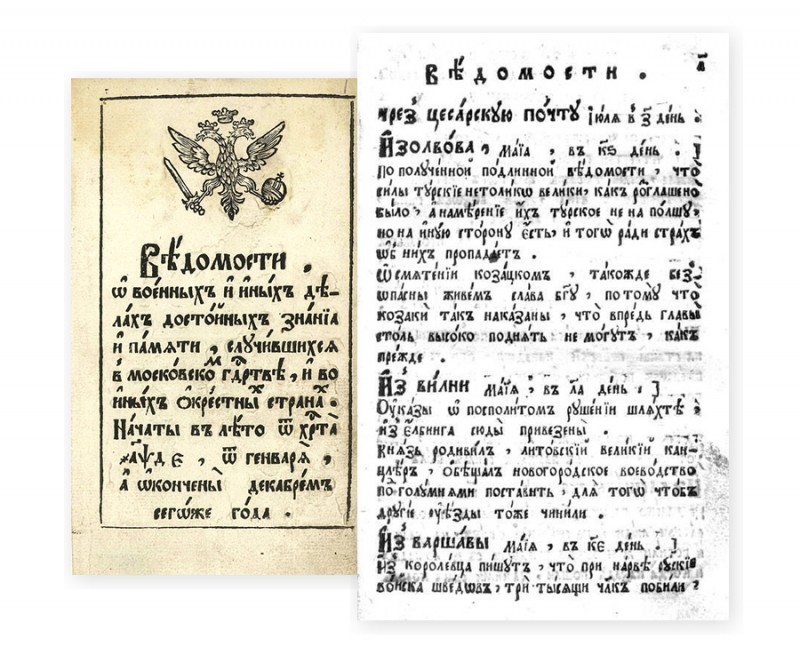 Вѣ́домости .
ѡ҆ вое́нныхъ и҆ и҆ны́хъ дѣ-
ла́хъ досто́йныхъ зна́нїѧ
и҆ па́мѧти , случи́вшихсѧ
в̾ моско́вско́мъ гдⷭ҇ртвѣ , и҆ во
и҆ны́хъ ѻ҆кре́стныхъ страна́хъ .
На́чаты въ лѣ́то ѿ хрⷭ҇та̀
҂аѱд є҃ , ѿ генварѧ ,
а҆ ѡ҆ко́нчены декабре́мъ
сегѡ́же го́да .
Вѣ́домости .
чрез̾ цеса́рскую по́чту і҆ю́лѧ в̾ з҃ де́нь .
И҆золво́ва , ма́їѧ , въ к҃ѕ де́нь .
По полꙋченной подлинной вѣ́домости , что
силы тꙋрскїе нетоликѡ велики , какъ розглашено
было , а намѣ́рение и҆хъ тꙋрское не на полшꙋ ,
но на и҆нꙋю сторонꙋ є҆сть , и҆ тогѡ̀ ради страхъ
ѡ҆б̾ нихъ пропада́етъ .
Ѡ҆ смѧтенїи коза́цкомъ , та́кожде без̾
ѡ҆па́сны живе́мъ сла́ва бг҃ꙋ , по томꙋ что
козаки та́къ нака́заны , что̀ впре́дь главы̀
сто́ль высо́ко поднѧть не мо́гꙋтъ , ка́къ
пре́жде .
И҆з̾ ви́лни ма́їѧ , в̾ л҃а де́нь .
Оу҆ка́зы ѡ҆ посполитомъ рꙋше́нїи шлѧхтѣ̀
и҆з̾ є҆лбинга сюды̀ привезены̀ .
Кнѧзь родивилъ , лито́вскїй великїй кан-
цле́ръ , ѻ҆бѣща́лъ новогородское воево́дство
по голꙋмиѧми поставить , длѧ тогѡ̀ что́бъ
дрꙋгїе оу҆ѣзды тоже чинили .
И҆з̾ варша́вы ма́їѧ , въ к҃є де́нь .
И҆з̾ короле́вца пи́шꙋтъ , что при на́рвѣ рꙋскїе
во́йска шве́дѡвъ , трѝ ты́сѧщи чл҃къ поби́ли ,